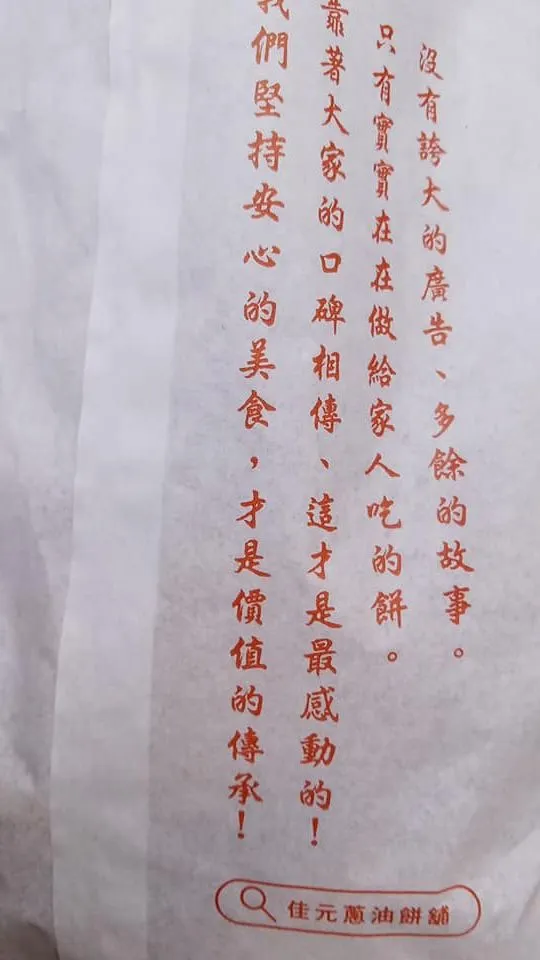 沒有誇大的廣告、多餘的故事。
只有實實在在做給家人吃的餅。
靠著大家的口碑相傳、這才是最感動的!
我們堅持安心的美食,才是價值的傳承!
佳元蔥油餅舖